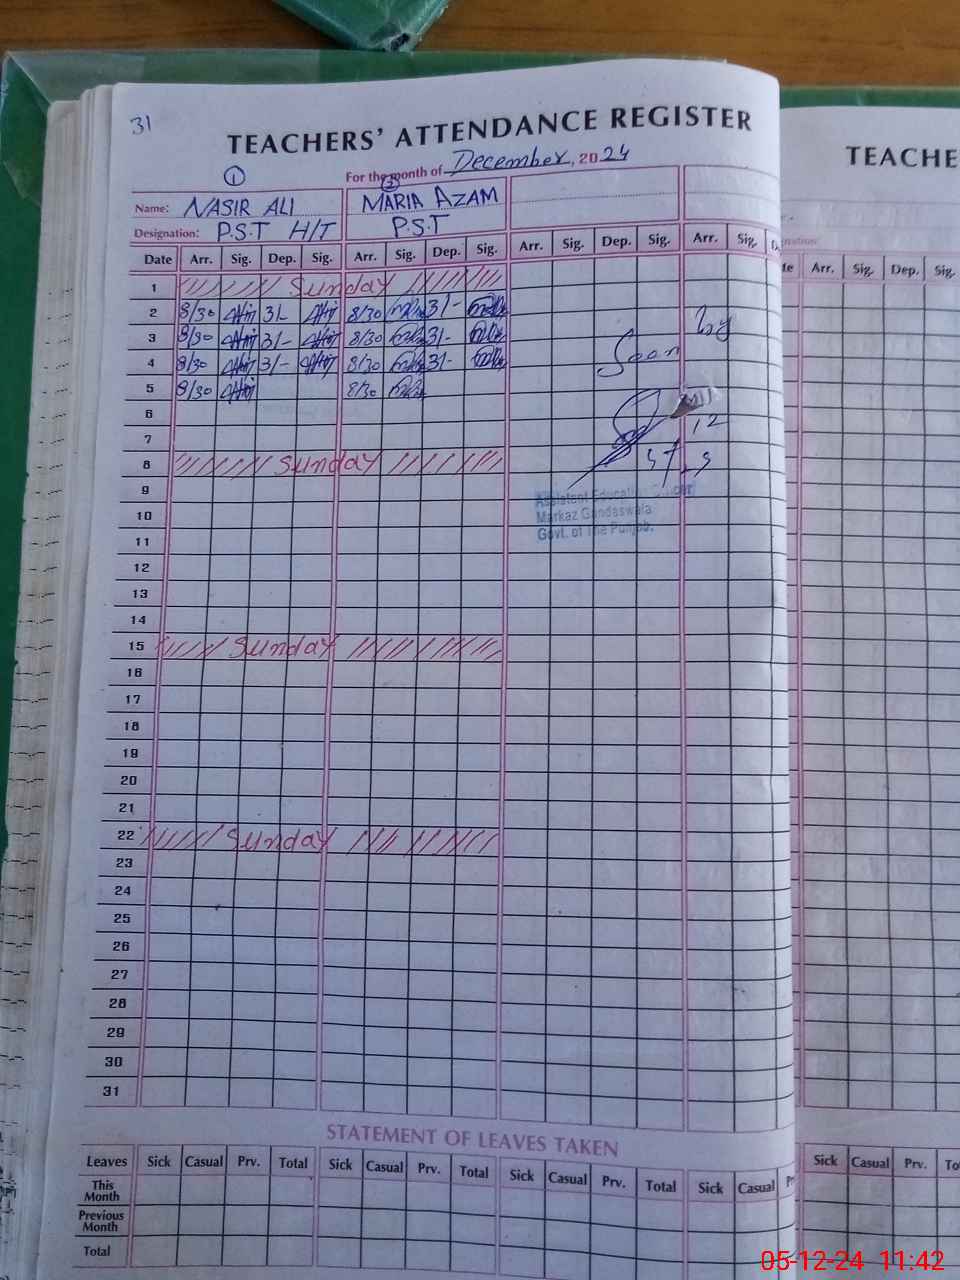 31
TEACHERS' ATTENDANCE REGISTER
For the month of December, 2024
TEACHE
1 2
Name: NASIR ALI MARIA AZAM
Designation: P.S.T H/T P.S.T
Date Arr. Sig. Dep. Sig. Arr. Sig. Dep. Sig. Arr. Sig. Dep. Sig. Arr. Sig. Arr. Sig. Dep. Sig.
1 Sunday
2 8/30 3/- 8/30 3/-
3 8/30 3/- 8/30 3/-
4 8/30 3/- 8/30 3/-
5 8/30 8/30
Seen by
6
7
8 Sunday
9
Assistant Education Officer
10
Markaz Gandaswala
Govt. of The Punjab.
11
12
13
14
15 Sunday
16
17
18
19
20
21
22 Sunday
23
24
25
26
27
28
29
30
31
STATEMENT OF LEAVES TAKEN
Leaves Sick Casual Prv. Total Sick Casual Prv. Total Sick Casual Prv. Total Sick Casual Sick Casual Prv.
This Month
Previous Month
Total
05-12-24 11:42